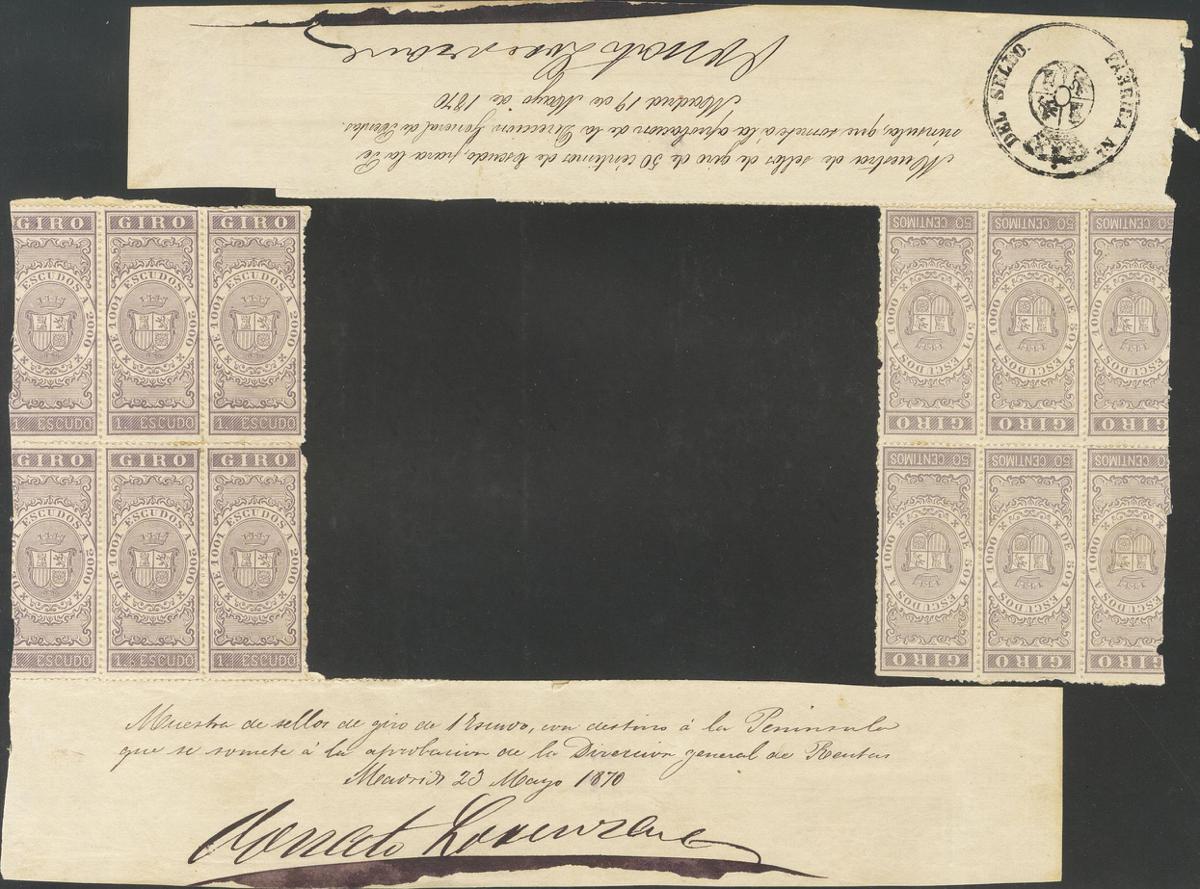 Muestra de sellos de giro de 50 céntimos de Escudo, para la Pe
nínsula, que somete á la aprobacion de la Direccion General de Rentas.
Madrid 19 de Mayo de 1870
DEL SELLO.
FABRICA NL
GIRO GIRO GIRO
ESCUDOS A 2000 DE 1001 ESCUDOS A 2000 DE 1001 ESCUDOS A 2000
1.. ESCUDO 1.. ESCUDO 1.. ESCUDO
GIRO GIRO GIRO
ESCUDOS A 2000 DE 1001 ESCUDOS A 2000 DE 1001 ESCUDOS A 2000
1.. ESCUDO 1.. ESCUDO 1.. ESCUDO
50 CENTIMOS 50 CENTIMOS 50 CENTIMOS
DE 501 ESCUDOS A 1000 DE 501 ESCUDOS A 1000 ESCUDOS A 1000
GIRO GIRO GIRO
50 CENTIMOS 50 CENTIMOS 50 CENTIMOS
DE 501 ESCUDOS A 1000 DE 501 ESCUDOS A 1000 ESCUDOS A 1000
GIRO GIRO GIRO
Muestra de sellos de giro de 1 Escudo, con destino á la Peninsula
que se somete á la aprobacion de la Direccion general de Rentas
Madrid 23 Mayo 1870
Donato Lorenzana